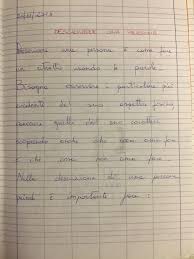 DESCRIVERE UNA PERSONA
Descrivere una persona è come fare
un ritratto usando le parole.
Bisogna osservare i particolari più
evidenti del suo aspetto fisico,
cercare quelli del suo carattere
scoprendo anche che cosa ama fare
e che cosa non ama fare.
Nella descrizione di una persona
quindi è importante fare: